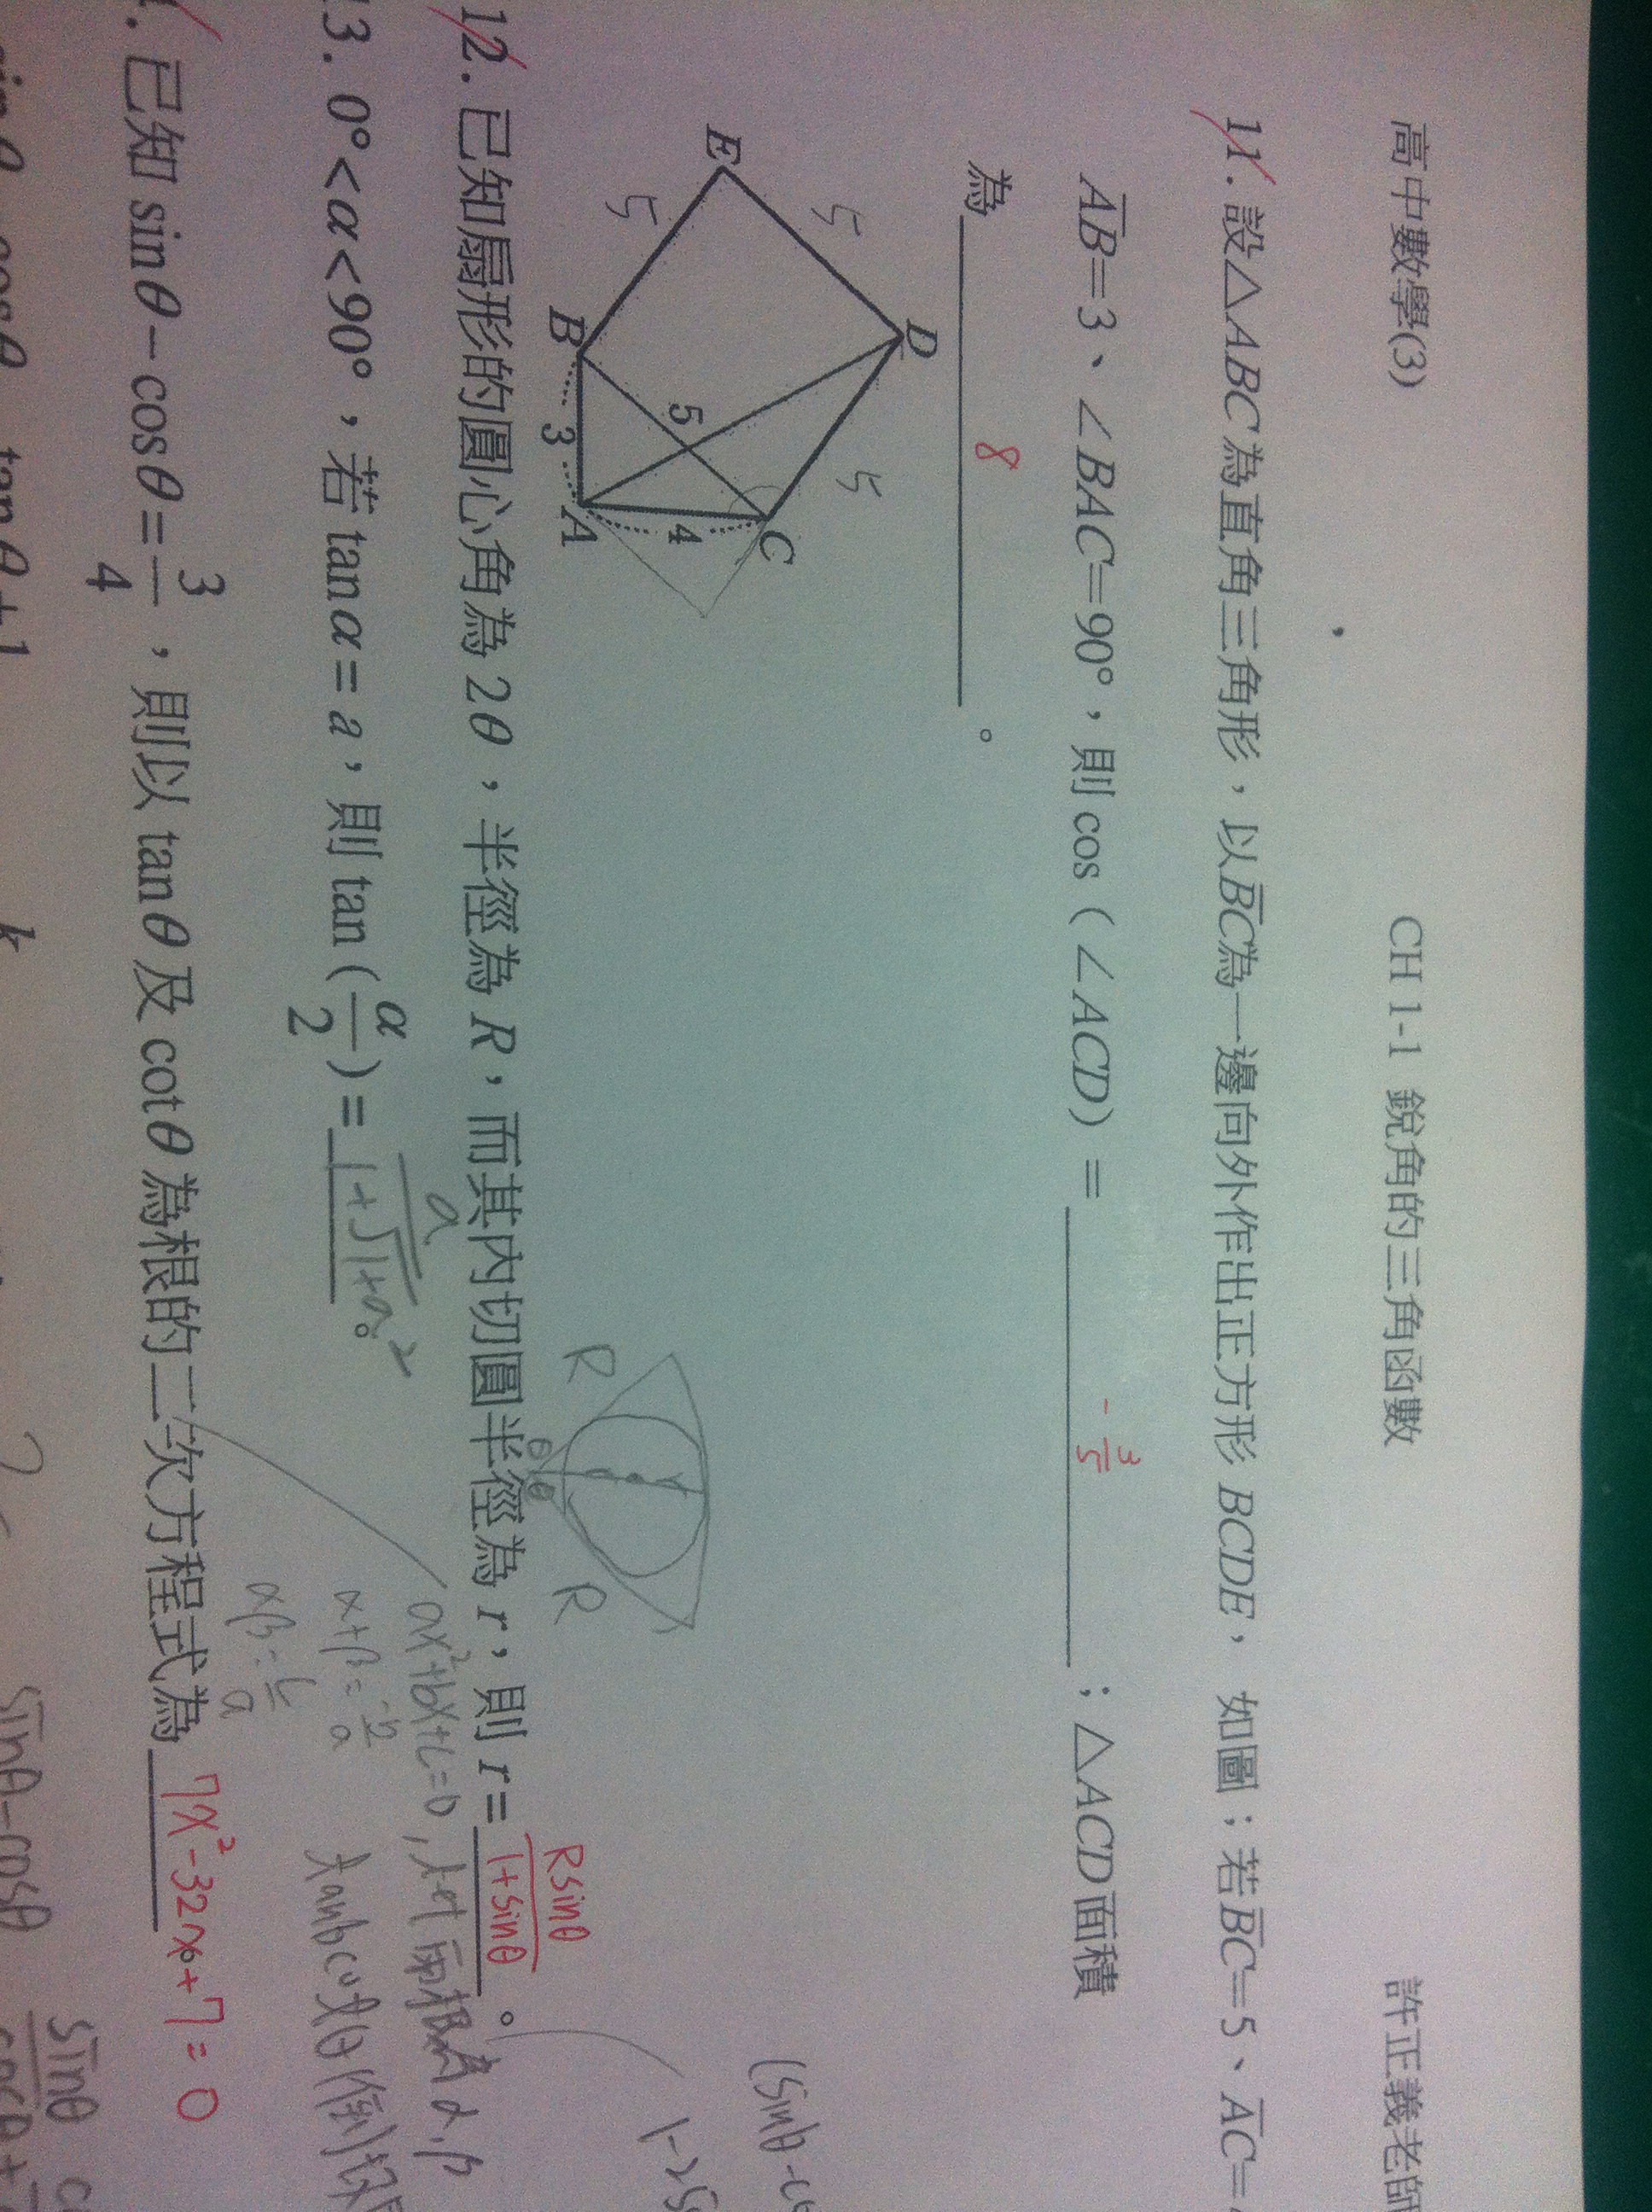 高中數學(3) CH 1-1 銳角的三角函數 許正義老師
11. 設△ABC為直角三角形，以BC為一邊向外作出正方形 BCDE，如圖；若BC=5、AC=
AB=3、∠BAC=90°，則 cos（∠ACD）= -3/5 ；△ACD面積
為 8 。
E 5 D 5 5 B 5 C 3 A 4
R R θ θ r
12. 已知扇形的圓心角為 2θ，半徑為 R，而其內切圓半徑為 r，則 r= Rsinθ/(1+sinθ) 。
13. 0°<α<90°，若 tanα=a，則 tan (α/2)= a/(1+√(1+a²)) 。
ax²+bx+c=0
α+β=-b/a
αβ=c/a
. 已知 sinθ−cosθ=3/4，則以 tanθ 及 cotθ 為根的二次方程式為 7x²-32x+7=0 。
sinθ-cosθ